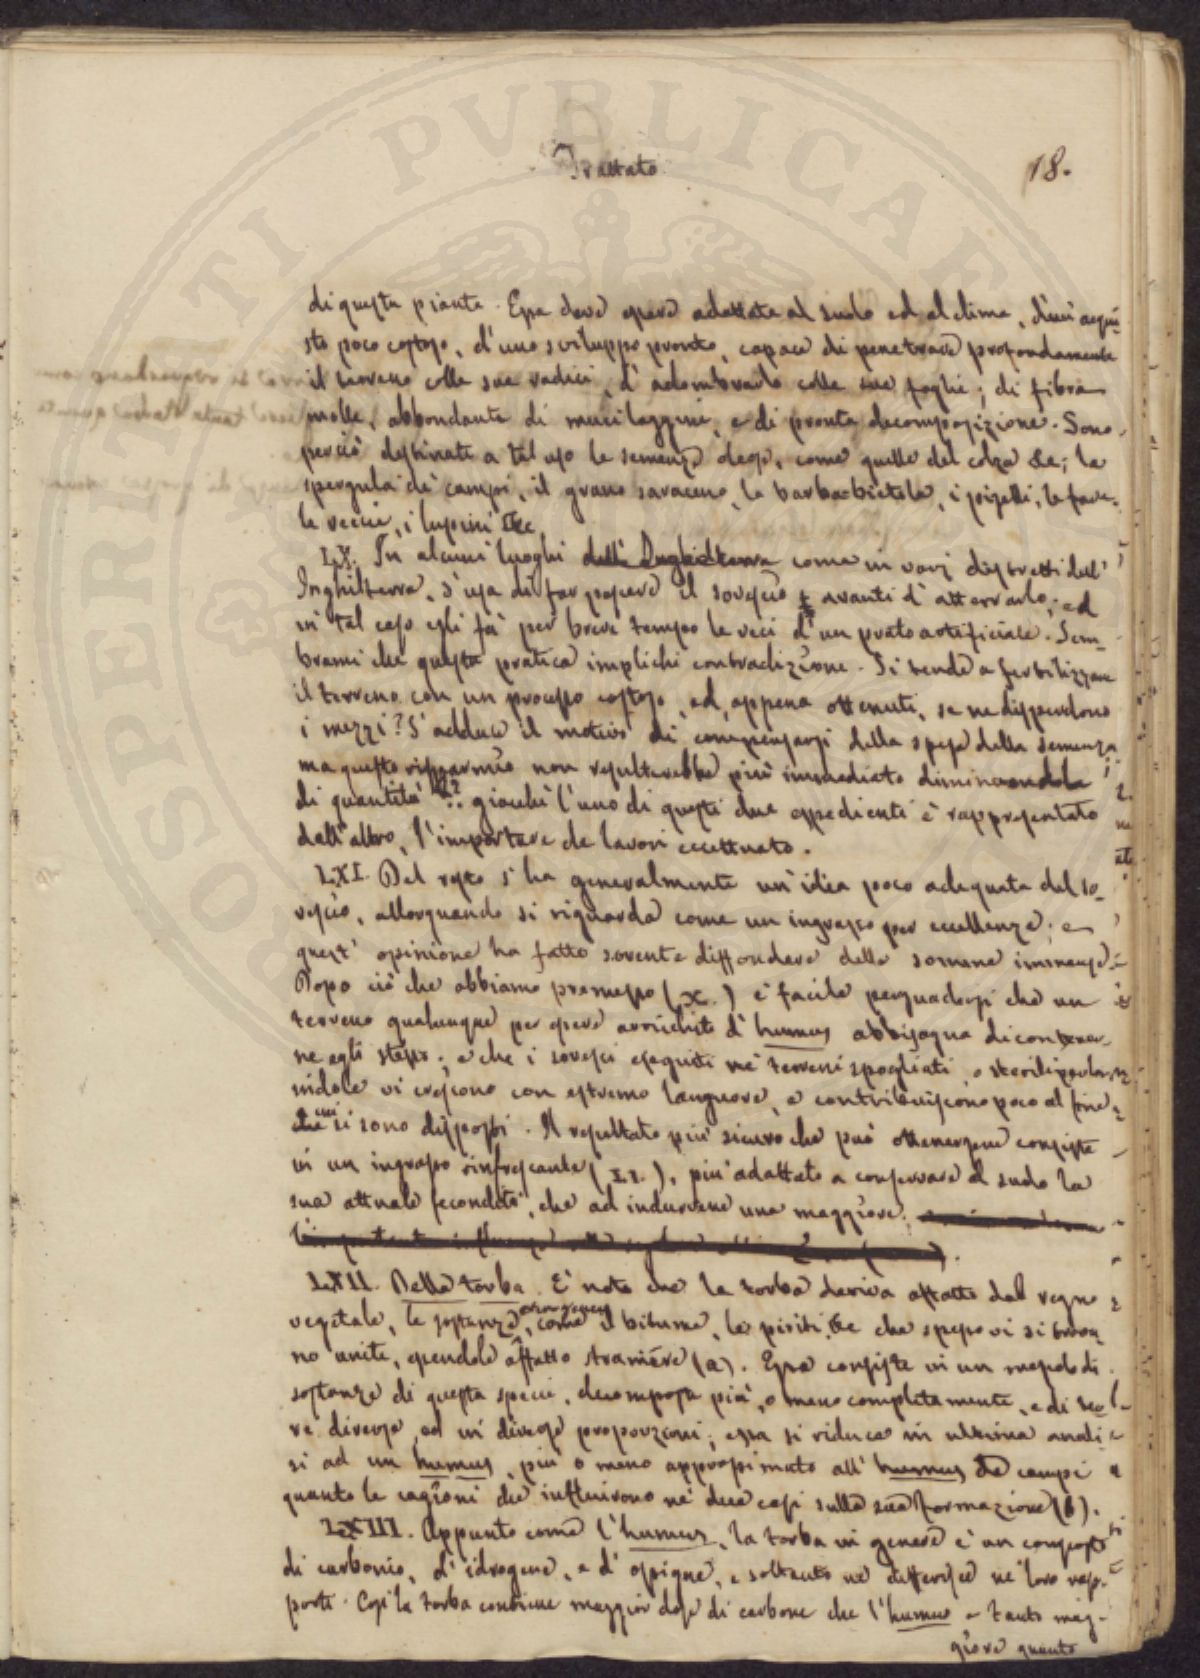 Trattato
18.
di questa pianta. Essa deve essere adattata al suolo ed al clima, d'un acqui-
sto poco costoso, d'uno sviluppo pronto, capace di penetrare profondamente
il terreno colle sue radici, d'adombrarlo colle sue foglie; di fibra
molle, abbondante di mucilaggine, e di pronta decomposizione. Sono
perciò destinate a tal uso le semenze oleose, come quelle del colza &c; la
spergula de' campi, il grano saraceno, la barba-bietola, i piselli, le fave,
le veccie, i lupini &c.
LX. In alcuni luoghi dell'Inghilterra come in varj distretti dell'
Inghilterra, s'usa di far pascere il sovescio avanti d'atterrarlo; ed
in tal caso egli fà per breve tempo le veci d'un prato artificiale. Sem-
brami che questa pratica implichi contradizione. Si tende a fertilizzare
il terreno con un processo costoso, ed, appena ottenuti, se ne disperdono
i mezzi? S'adduce il motivo di compensarsi della spesa della semenza,
ma questo risparmio non resulterebbe più immediato diminuendola
di quantità?? giacchè l'uno di questi due espedienti è rappresentato
dall'altro, l'importare de lavori eccettuato.
LXI. Del resto s'ha generalmente un'idea poco adequata del so-
vescio, allorquando si riguarda come un ingrasso per eccellenza; e
quest'opinione ha fatto sovente diffondere delle somme immense.
Dopo ciò che abbiamo premesso (X.) è facile persuadersi che un
terreno qualunque per essere arricchito d'humus abbisogna di contener-
ne egli stesso; e che i sovesci eseguiti ne' terreni spogliati, o sterili per la
indole vi crescono con estremo languore, e contribuiscono poco al fine
a cui si sono disposti. Il resultato più sicuro che può ottenersene consiste
in un ingrasso rinfrescante, più adattato a conservare al suolo la
sua attuale fecondità, che ad indurvene una maggiore.
LXII. Della torba. È noto che la torba deriva affatto dal regno
vegetale, le sostanze, come il bitume, le piriti &c che spesso vi si trova-
no unite, essendole affatto straniere (a). Essa consiste in un miscuglio di
sostanze di questa specie, decomposte più, o meno completamente, e di
diverse, ed in diverse proporzioni; essa si riduce in ultima anali-
si ad un humus, più o meno approssimato all'humus de' campi
quanto le cagioni che influirono ne' due casi sulla sua formazione (b).
LXIII. Appunto come l'humus, la torba in genere è un composto
di carbonio, d'idrogene, e d'ossigene, e soltanto ne differisce ne' loro rap-
porti. Così la torba contiene maggior dose di carbone che l'humus e tanto mag-
giore quanto